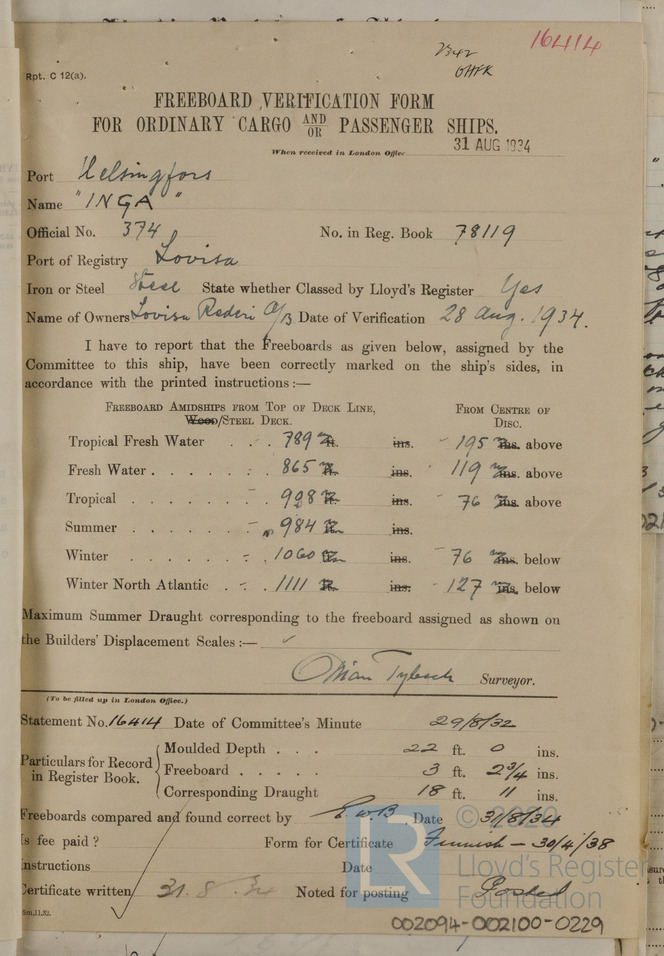 2342
OHFK
16414
Rpt. C 12(a).
FREEBOARD VERIFICATION FORM
FOR ORDINARY CARGO AND/OR PASSENGER SHIPS.
When received in London Office 31 AUG 1934
Port Helsingfors
Name "INGA"
Official No. 374 No. in Reg. Book 78119
Port of Registry Lovisa
Iron or Steel Steel State whether Classed by Lloyd's Register Yes
Name of Owners Lovisa Rederi A/B Date of Verification 28 Aug. 1934.
I have to report that the Freeboards as given below, assigned by the
Committee to this ship, have been correctly marked on the ship's sides, in
accordance with the printed instructions :—
FREEBOARD AMIDSHIPS FROM TOP OF DECK LINE, FROM CENTRE OF
WOOD/STEEL DECK. DISC.
Tropical Fresh Water 789 ft. ins. 195 ins. above
Fresh Water 865 ft. ins. 119 ins. above
Tropical 908 ft. ins. 76 ins. above
Summer 984 ft. ins.
Winter 1060 ft. ins. 76 ins. below
Winter North Atlantic 1111 ft. ins. 127 ins. below
Maximum Summer Draught corresponding to the freeboard assigned as shown on
the Builders' Displacement Scales :—
Surveyor.
(To be filled up in London Office.)
Statement No. 16414 Date of Committee's Minute 29/8/32
Particulars for Record in Register Book.
Moulded Depth 22 ft. 0 ins.
Freeboard 3 ft. 2 3/4 ins.
Corresponding Draught 18 ft. 11 ins.
Freeboards compared and found correct by E.W.B. Date 31/8/34
Is fee paid ? Form for Certificate Finnish – 30/4/38
Instructions Date
Certificate written 31.8.34 Noted for posting Posted
5m,11,32.
© 2020
LR
Lloyd's Register
Foundation
002094-002100-0229